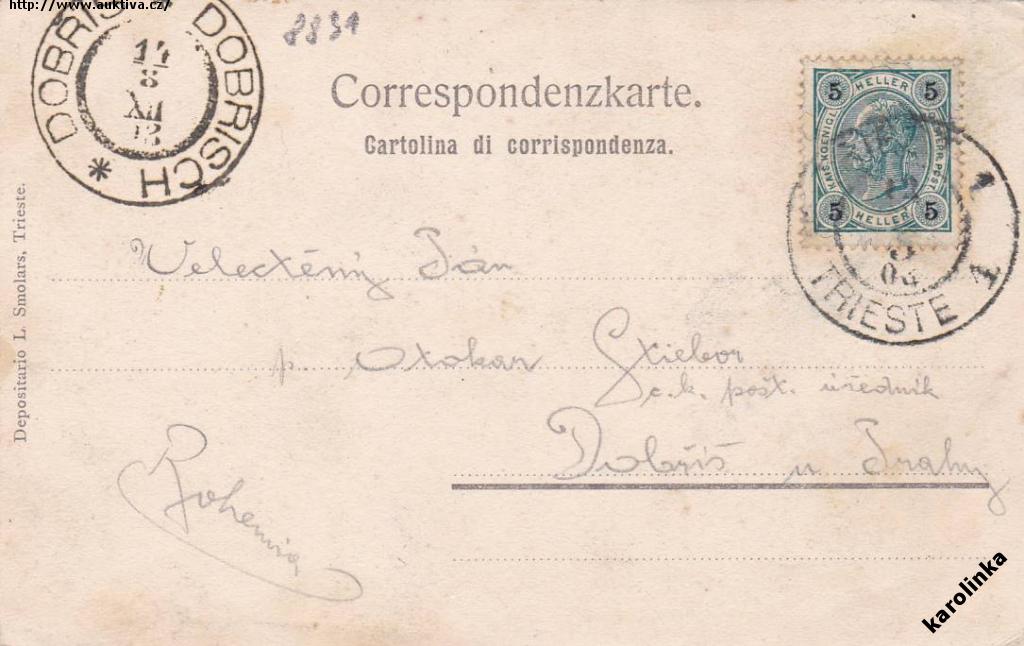 http://www.auktiva.cz/
DOBŘÍŠ DOBRISCH *
14
8
XII
8831
Correspondenzkarte.
Cartolina di corrispondenza.
5 HELLER 5
KAIS. KOENIGL. OESTERR. POST
5 HELLER 5
TRIESTE 1
Depositario L. Smolars, Trieste.
Velectěný Pán
p. Otokar Stiebor
c.k. pošt. úředník
Dobříš u Prahy
Bohemia
karolinka